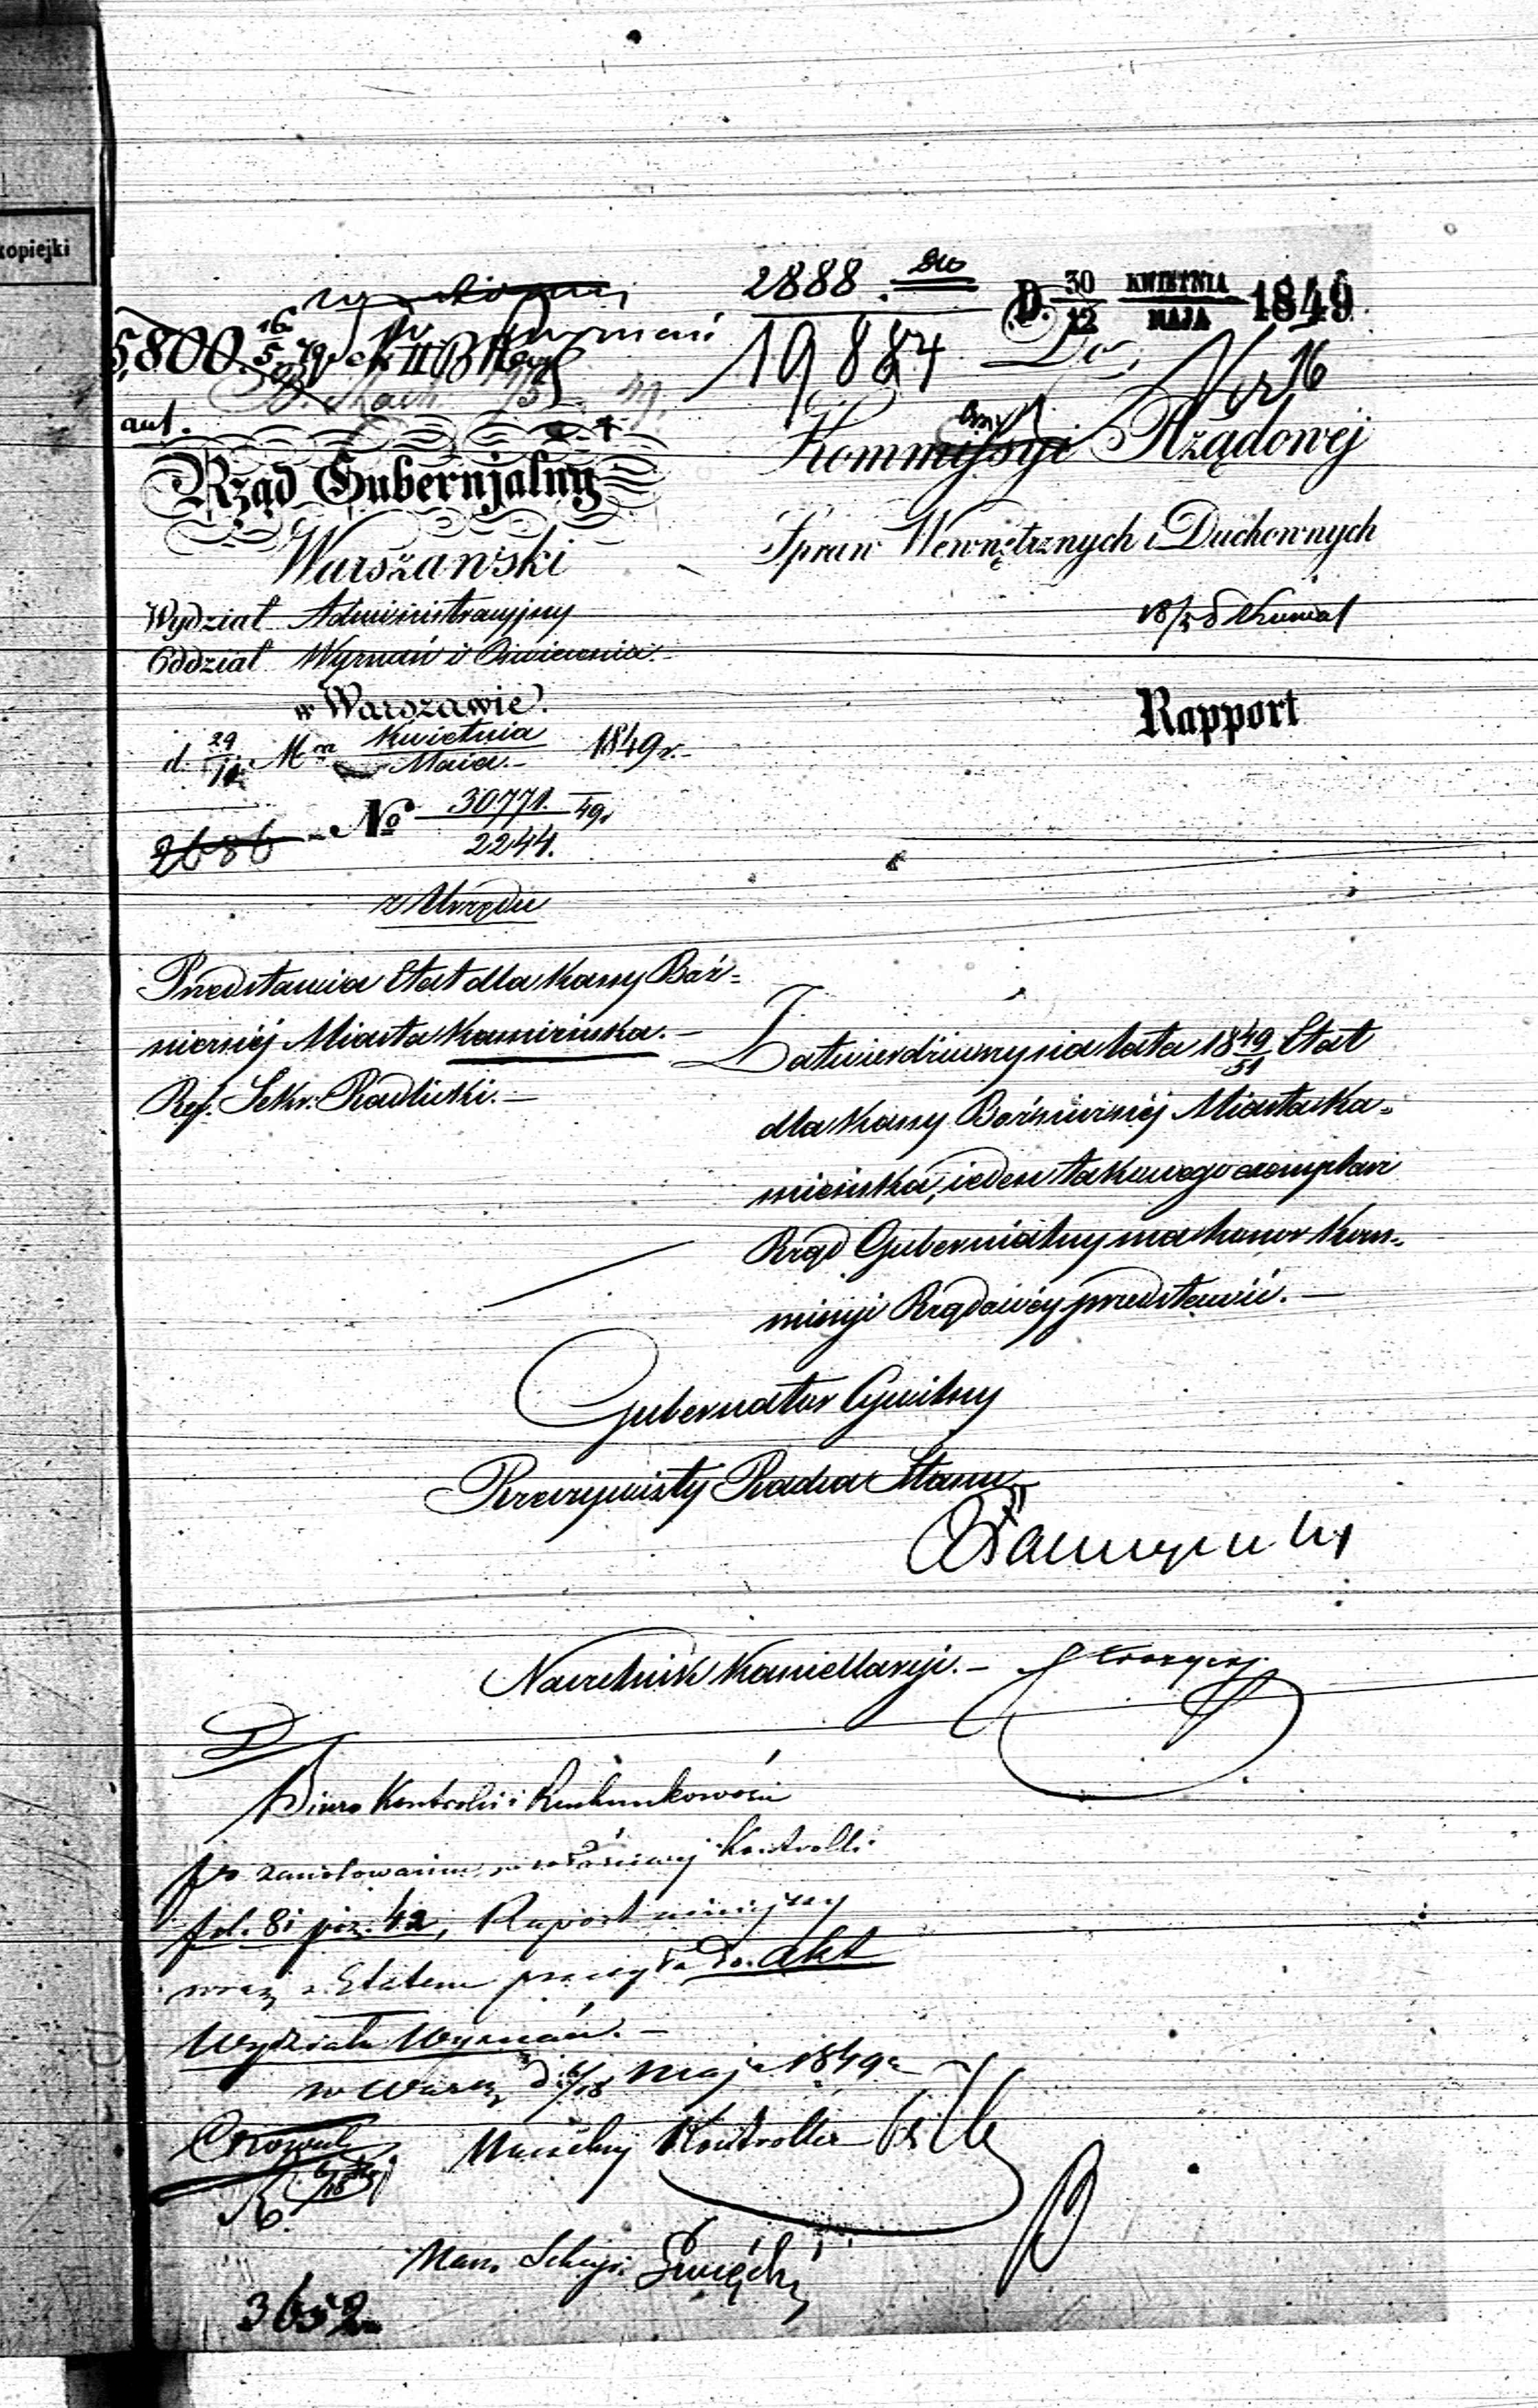 kopiejki
2888.
19884
D. 30/12 KWIETNIA/MAJA 1849
Do
Nr 16
5,800.
ant.
Rząd Gubernjalny
Warszawski
Wydział Administracyjny
Oddział Wyznań i Oświecenia.
w Warszawie.
d. 29/11 Mca Kwietnia/Maia 1849 r.
2686 No 30771./2244. 49r
z Urzędu
Kommissyi Rządowej
Spraw Wewnętrznych i Duchownych
Rapport
Przedstawia Etat dla Kassy Boż=
niczéj Miasta Kamieńska.
Ref. Sekr. Pawlicki.
Zatwierdziwszy na lata 1849/51 Etat
dla Kassy Bożniczéj Miasta Ka=
mieńska, ieden takowego exemplarz
Rząd Gubernialny ma honor Kom=
missyi Rządowéy przedstawić.
Gubernator Cywilny
Rzeczywisty Radca Stanu
Naczelnik Kancellaryi.
Biuro Kontroli i Rachunkowości
po zanotowaniu w właściwej Kontrolli
fol. 81 poz. 42, Raport niniejszy
wraz z Etatem przesyła do akt
Wydziału Wyznań.
w Warsz. d. 6/18 Maja 1849 r.
Naczelny Kontroller
Nacz. Sekcyi
3652